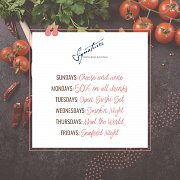 Signatures
SUNDAYS: Cheese and wine
MONDAYS: 50% on all drinks
TUESDAYS: Open Sushi Set
WEDNESDAYS: Snack'n Night
THURSDAYS: Meat the World
FRIDAYS: Seafood Night